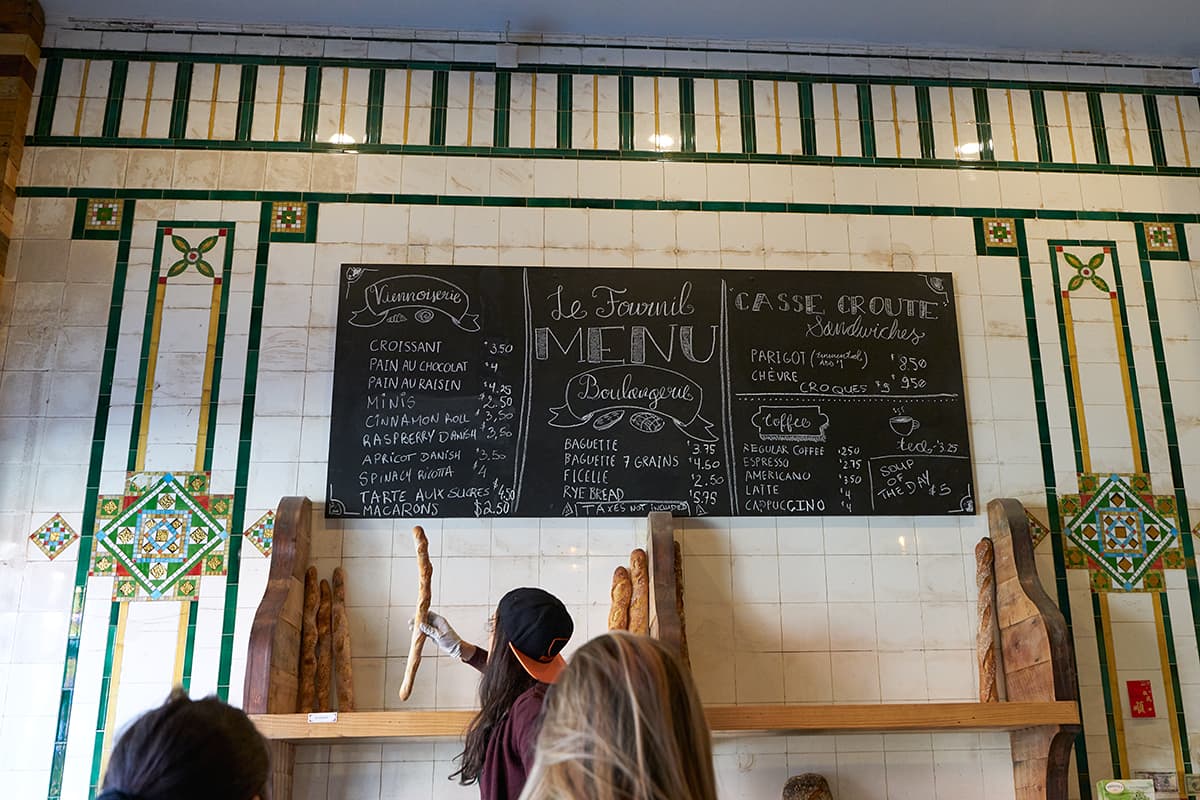 Viennoiserie
CROISSANT $3.50
PAIN AU CHOCOLAT $4
PAIN AU RAISIN $4.25
MINIS $2.50
CINNAMON ROLL $3,50
RASPBERRY DANISH $3,50
APRICOT DANISH $3,50
SPINACH RICOTTA $4
TARTE AUX SUCRES $4.50
MACARONS $2.50
Le Fournil
MENU
Boulangerie
BAGUETTE $3.75
BAGUETTE 7 GRAINS $4.50
FICELLE $2.50
RYE BREAD $5.75
TAXES NOT INCLUDED
CASSE CROUTE
Sandwiches
PARIGOT $8,50
CHÈVRE
CROQUES $9 $9,50
Coffee
REGULAR COFFEE $2.50
ESPRESSO $2.75
AMERICANO $3.50
LATTE $4
CAPPUCCINO $4
tea $3.25
SOUP
OF
THE DAY $5